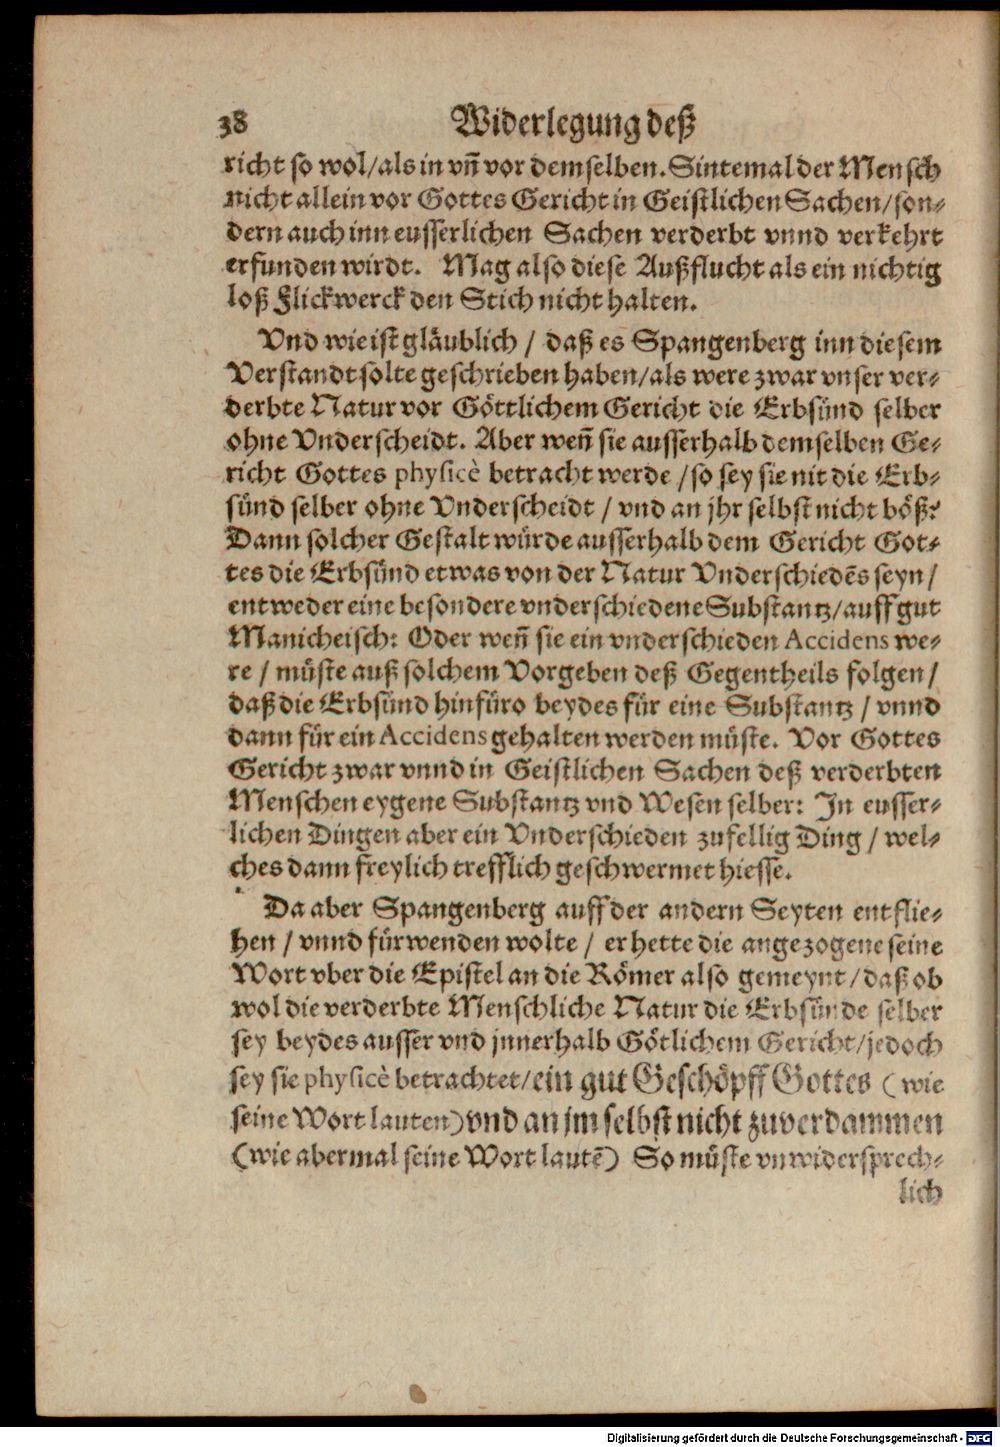 38 Widerlegung deß
richt so wol/als in vñ vor demselben. Sintemal der Mensch
nicht allein vor Gottes Gericht in Geistlichen Sachen/son-
dern auch inn eusserlichen Sachen verderbt vnnd verkehrt
erfunden wirdt. Mag also diese Außflucht als ein nichtig
loß Flickwerck den Stich nicht halten.
Vnd wie ist gläublich / daß es Spangenberg inn diesem
Verstandt solte geschrieben haben/als were zwar vnser ver-
derbte Natur vor Göttlichem Gericht die Erbsünd selber
ohne Vnderscheidt. Aber weñ sie ausserhalb demselben Ge-
richt Gottes physicè betracht werde /so sey sie nit die Erb-
sünd selber ohne Vnderscheidt / vnd an jhr selbst nicht böß?
Dann solcher Gestalt würde ausserhalb dem Gericht Got-
tes die Erbsünd etwas von der Natur Vnderschiedẽs seyn/
entweder eine besondere vnderschiedene Substantz/auff gut
Manicheisch: Oder weñ sie ein vnderschieden Accidens we-
re / müste auß solchem Vorgeben deß Gegentheils folgen/
daß die Erbsünd hinfüro beydes für eine Substantz / vnnd
dann für ein Accidens gehalten werden müste. Vor Gottes
Gericht zwar vnnd in Geistlichen Sachen deß verderbten
Menschen eygene Substantz vnd Wesen selber: In eusser-
lichen Dingen aber ein Vnderschieden zufellig Ding / wel-
ches dann freylich trefflich geschwermet hiesse.
Da aber Spangenberg auff der andern Seyten entflie-
hen / vnnd fürwenden wolte / er hette die angezogene seine
Wort vber die Epistel an die Römer also gemeynt/daß ob
wol die verderbte Menschliche Natur die Erbsünde selber
sey beydes ausser vnd jnnerhalb Götlichem Gericht/jedoch
sey sie physicè betrachtet/ein gut Geschöpff Gottes (wie
seine Wort lauten)vnd an jm selbst nicht zuverdammen
(wie abermal seine Wort lautẽ) So müste vnwidersprech-
lich
Digitalisierung gefördert durch die Deutsche Forschungsgemeinschaft - DFG